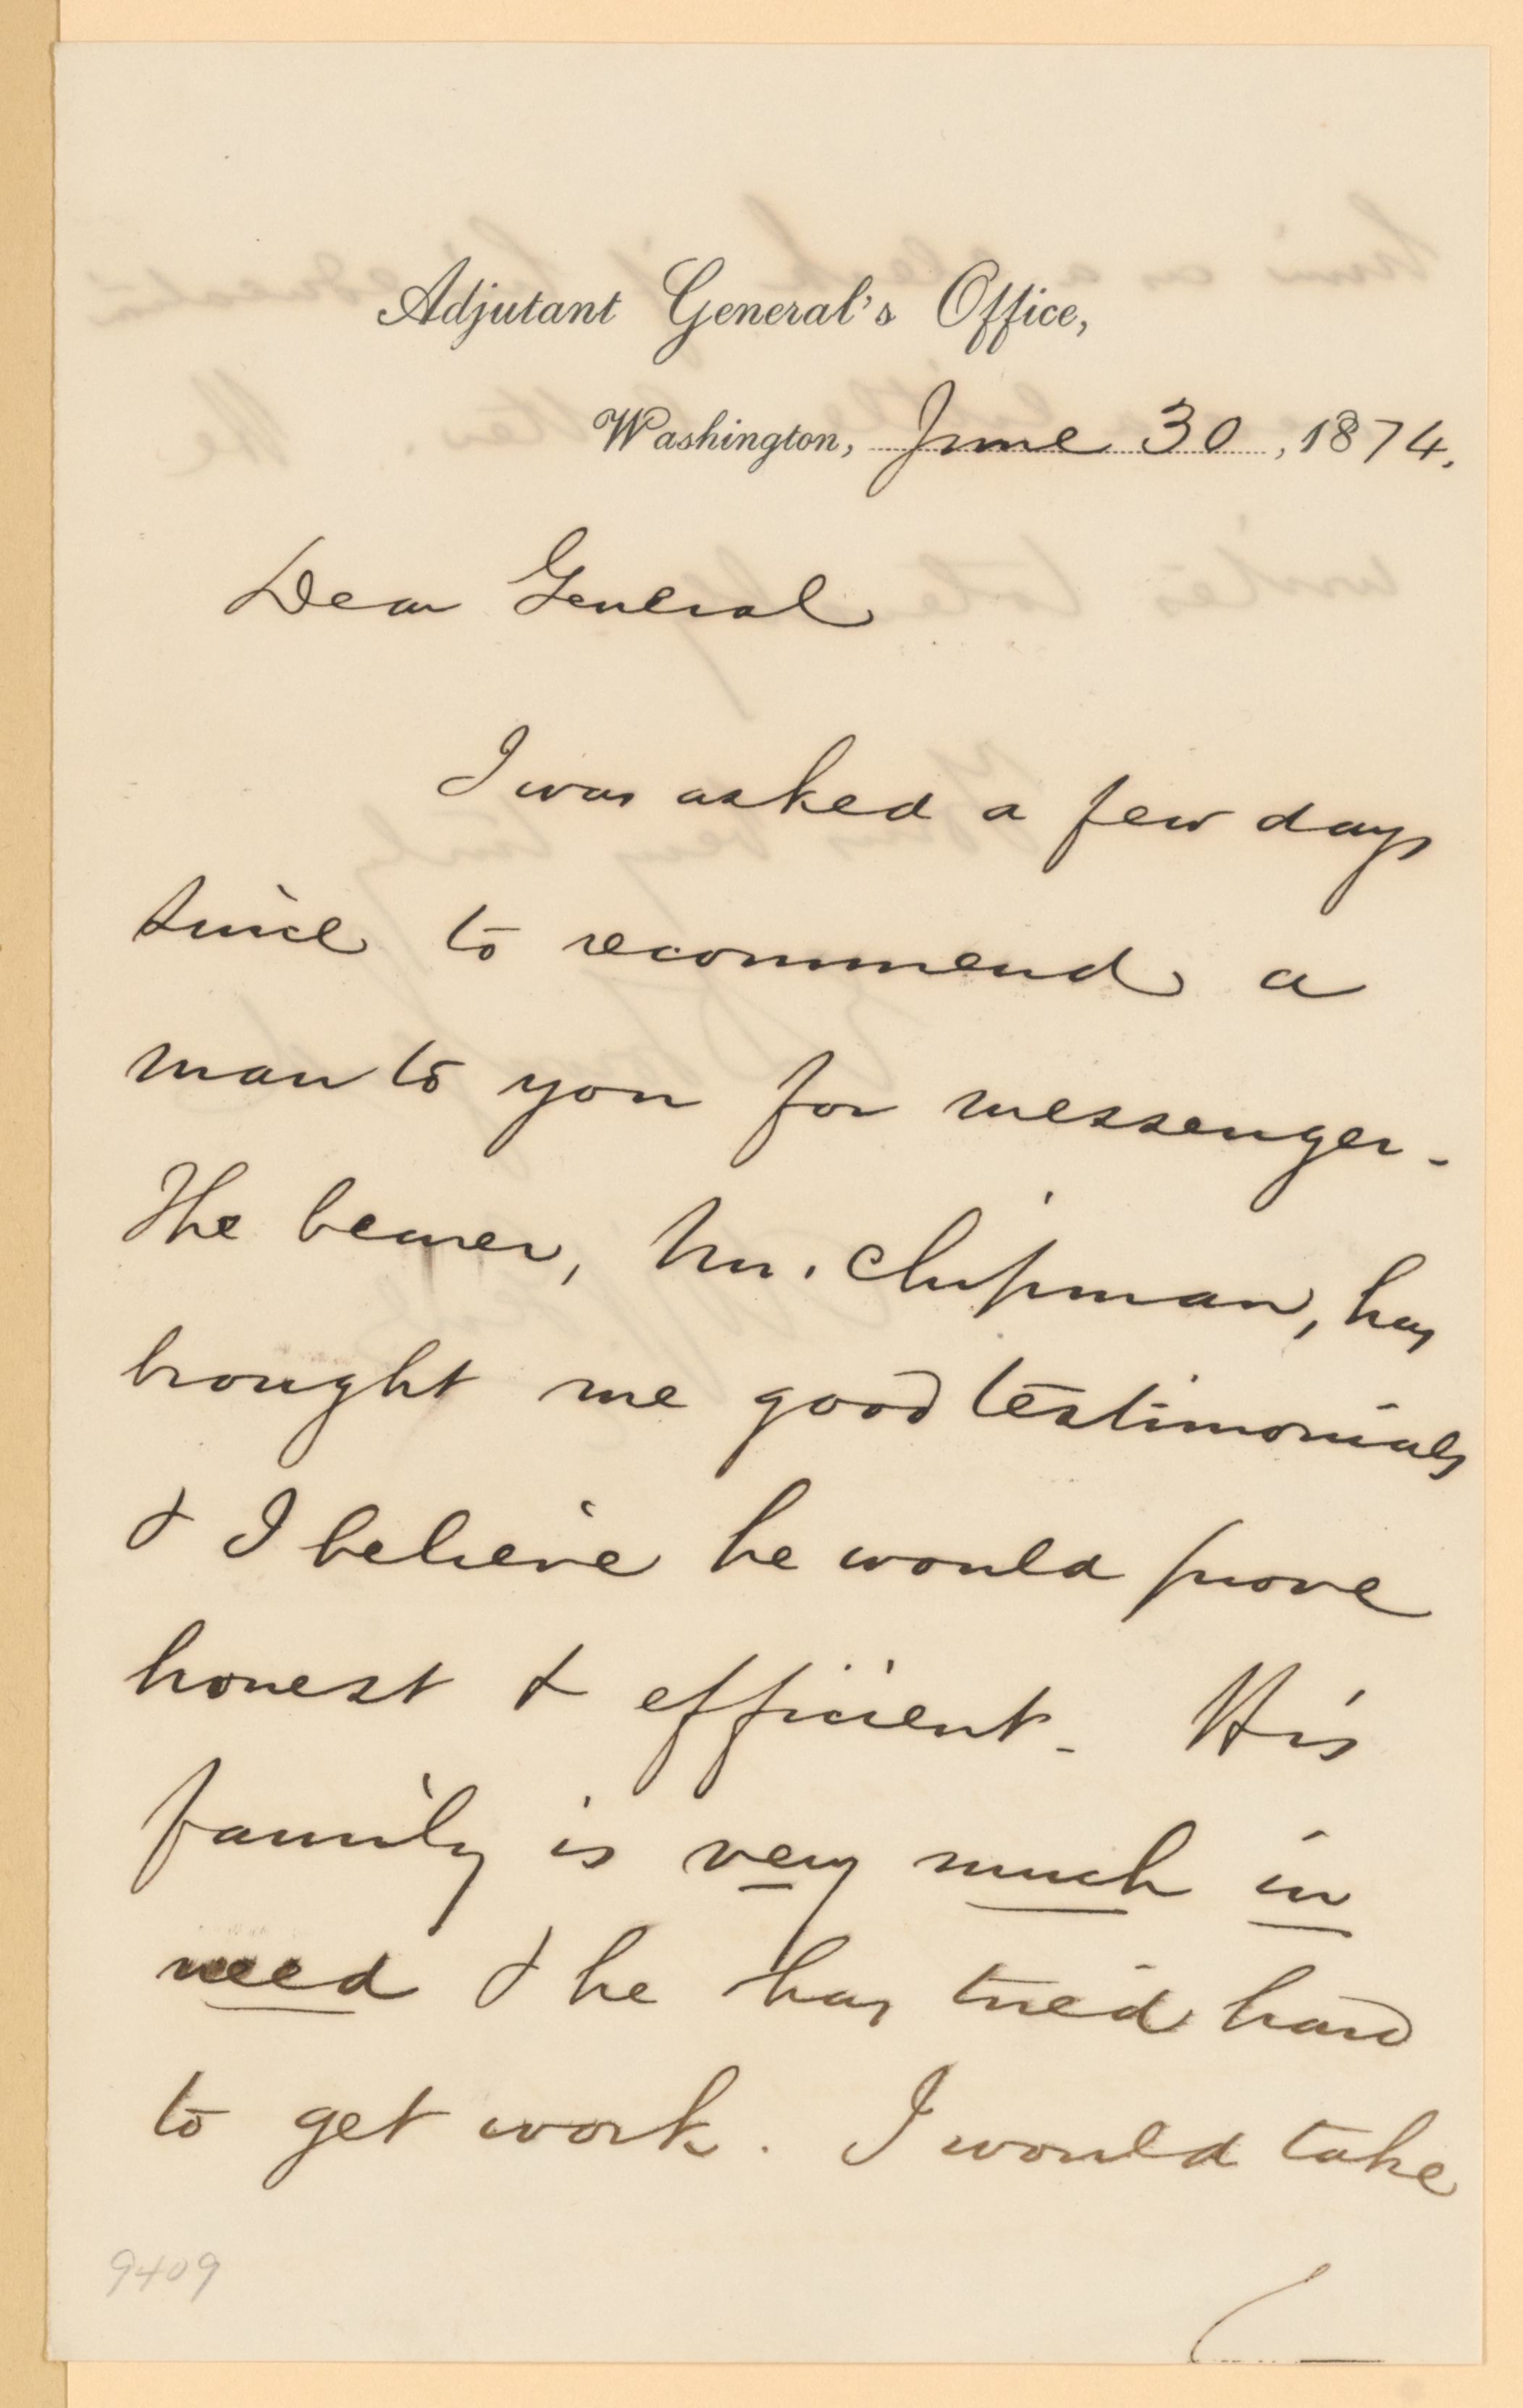 Adjutant General's Office,
Washington, June 30, 1874.
Dear General
I was asked a few days
since to recommend a
man to you for messenger.
The bearer, Mr. Chipman, has
brought me good testimonials
& I believe he would prove
honest & efficient. His
family is very much in
need & he has tried hard
to get work. I would take
9409